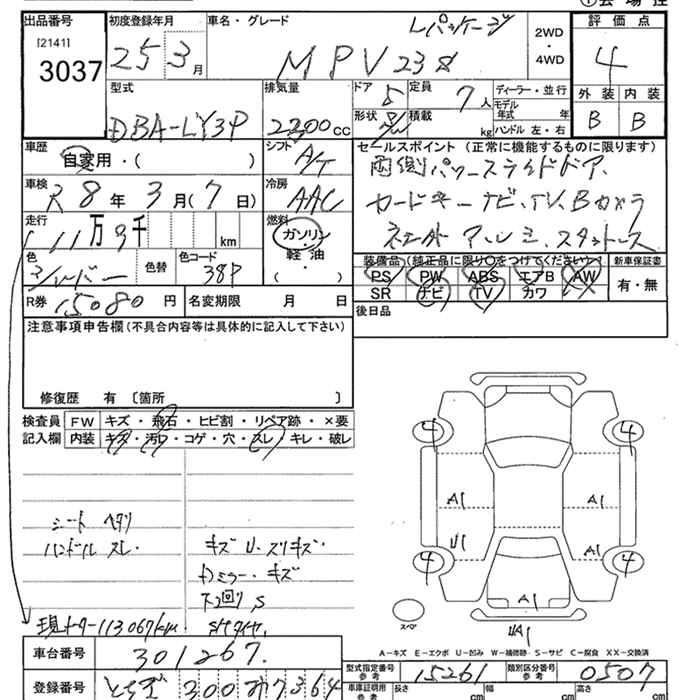 出品番号 初度登録年月 車名・グレード Lパッケージ 2WD 評価点
[2141] 3037 25 3月 MPV 23S ・4WD 4
型式 排気量 ドア 5 定員 7人 ディーラー・並行 外装 内装
DBA-LY3P 2300cc 形状 積載 kg モデル年式 年 B B
ハンドル 左・右
車歴 自家用・( ) シフト A/T セールスポイント (正常に機能するものに限ります)
両側パワースライドドア、
車検 R8年3月(7日) 冷房 AAC カードキー ナビ、TV、Bカメラ
走行 11万3千 km 燃料 ガソリン・軽油・( ) アルミ、スタッドレス
色 シルバー 色替 色コード 38P 装備品 (純正品に限り○をつけてください) 新車保証書
PS PW ABS エアB AW 有・無
R券 15080円 名変期限 月 日 SR ナビ TV カワ
注意事項申告欄(不具合内容等は具体的に記入して下さい) 後日品
修復歴 有 〔箇所 〕
検査員 FW キズ・飛石・ヒビ割・リペア跡・×要
記入欄 内装 キズ・汚れ・コゲ・穴・スレ・キレ・破レ
4 4
A1 A1
シート ヘタリ U1
ハンドル スレ. キズ U・スリキズ・ A1
Dミラー・キズ 4 4
下回り S A1
現メーター113067km スペア UA1
A-キズ E-エクボ U-凹み W-補修跡 S-サビ C-腐食 XX-交換済
車台番号 301267. 型式指定番号 参考 15261 類別区分番号 参考 0507
登録番号 とちぎ 300 364 車庫証明用 参考 長さ cm 幅 cm 高さ cm